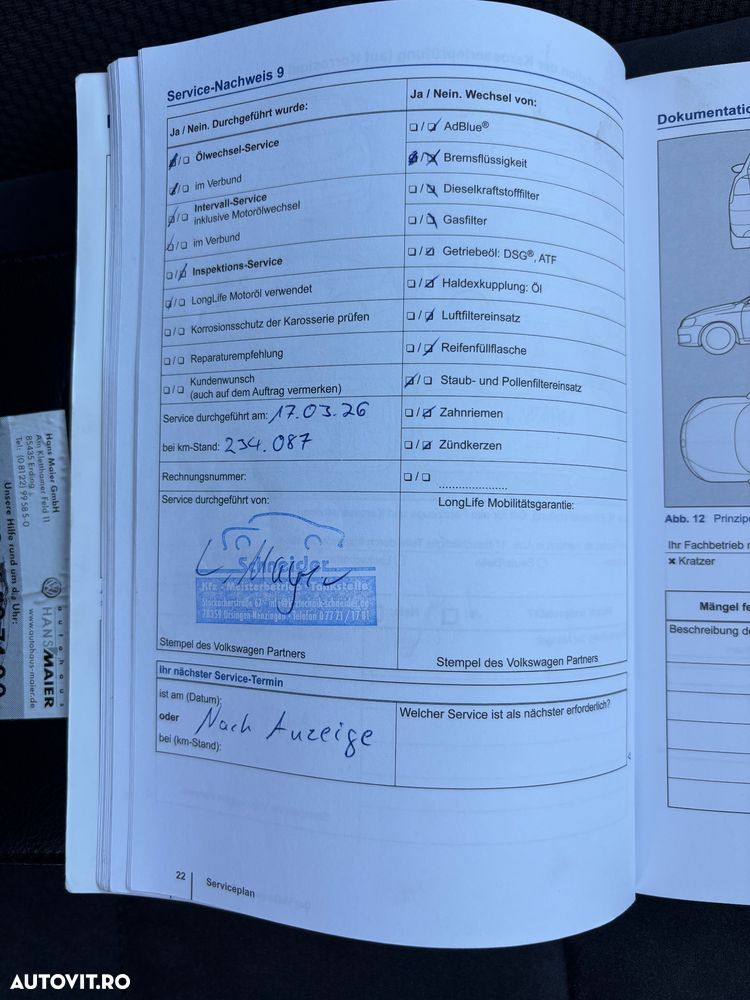 Service-Nachweis 9
Ja / Nein. Durchgeführt wurde:
Ölwechsel-Service
im Verbund
Intervall-Service
inklusive Motorölwechsel
im Verbund
Inspektions-Service
LongLife Motoröl verwendet
Korrosionsschutz der Karosserie prüfen
Reparaturempfehlung
Kundenwunsch
(auch auf dem Auftrag vermerken)
Service durchgeführt am: 17.03.26
bei km-Stand: 234.087
Rechnungsnummer:
Service durchgeführt von:
Schneider
Kfz - Meisterbetrieb - Tankstelle
78359 Orsingen-Nenzingen - Telefon 0 77 71 / 17 81
Stempel des Volkswagen Partners
Ja / Nein. Wechsel von:
AdBlue®
Bremsflüssigkeit
Dieselkraftstofffilter
Gasfilter
Getriebeöl: DSG®, ATF
Haldexkupplung: Öl
Luftfiltereinsatz
Reifenfüllflasche
Staub- und Pollenfiltereinsatz
Zahnriemen
Zündkerzen
LongLife Mobilitätsgarantie:
Stempel des Volkswagen Partners
Ihr nächster Service-Termin
ist am (Datum):
oder Nach Anzeige
bei (km-Stand):
Welcher Service ist als nächster erforderlich?
22
Serviceplan
Dokumentatio
Abb. 12 Prinzip
Ihr Fachbetrieb
× Kratzer
Mängel fe
Beschreibung de
Hans Maier GmbH
Am Kletthamer Feld 11
85435 Erding
Tel: (0 81 22) 99 58 5-0
Unsere Hilfe rund um d. Uhr:
autohaus
HANS MAIER
www.autohaus-maier.de
AUTOVIT.RO